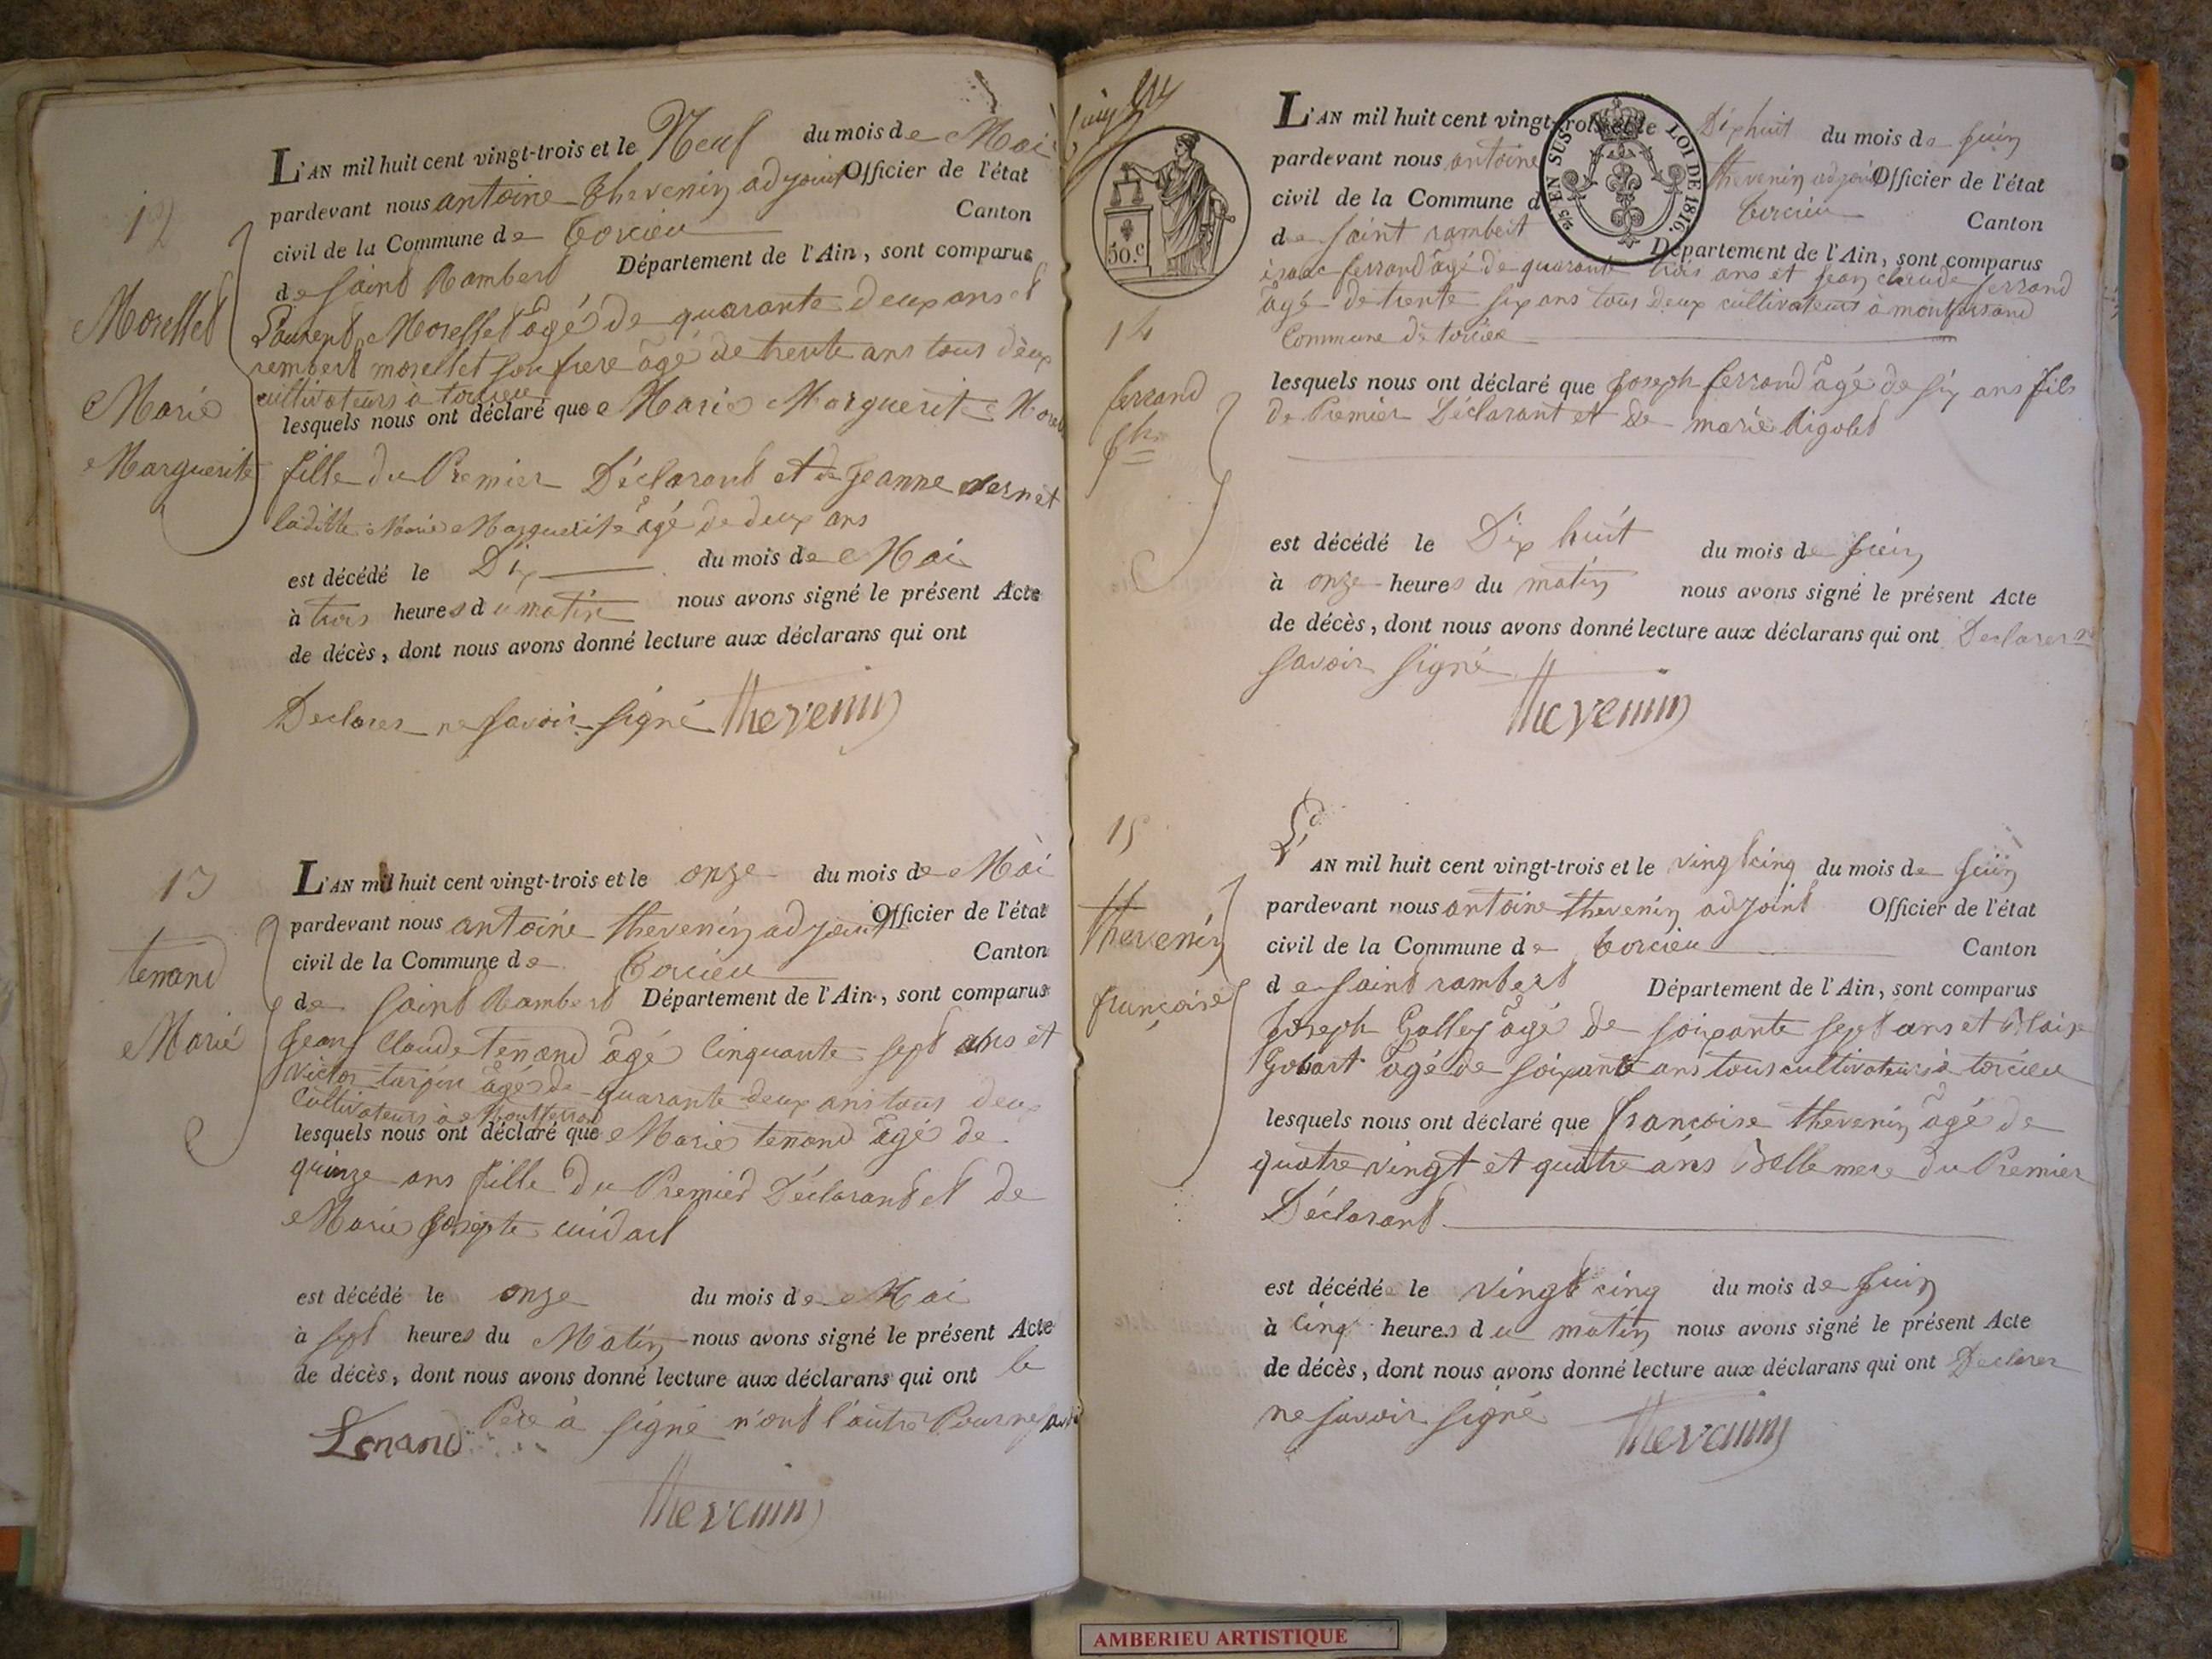 12
Morellet
Marie
Marguerite
L'AN mil huit cent vingt-trois et le Neuf du mois de Mai
pardevant nous antoine thevenin adjoint Officier de l'état
civil de la Commune de torcieu Canton
de Saint Rambert Département de l'Ain, sont comparus
Laurent Morellet âgé de quarante deux ans et
rembert morellet son frere âgé de trente ans tous deux
cultivateurs à torcieu
lesquels nous ont déclaré que Marie Marguerite
fille du Premier Déclarant et de jeanne vernet
laditte Marie Marguerite âgé de deux ans
est décédé le Dix du mois de Mai
à trois heures du matin nous avons signé le présent Acte
de décès, dont nous avons donné lecture aux déclarans qui ont
Declarer ne savoir signé thevenin
13
tenand
Marie
L'AN mil huit cent vingt-trois et le onze du mois de Mai
pardevant nous antoine thevenin adjoint Officier de l'état
civil de la Commune de torcieu Canton
de Saint Rambert Département de l'Ain, sont comparus
jean Claude tenand âgé Cinquante sept ans et
victor âgé de quarante deux ans tous deux
Cultivateurs à Montferrand
lesquels nous ont déclaré que Marie tenand âgé de
quinze ans fille du Premier Déclarant et de
Marie
est décédé le onze du mois de Mai
à sept heures du Matin nous avons signé le présent Acte
de décès, dont nous avons donné lecture aux déclarans qui ont le
Pere à signé n'ont l'autre Pour ne
tenand
thevenin
50.c
2/5 EN SUS. LOI DE 1816.
14
ferrand
jh
L'AN mil huit cent vingt-trois et le Dix huit du mois de juin
pardevant nous antoine thevenin adjoint Officier de l'état
civil de la Commune de torcieu Canton
de saint rambert Département de l'Ain, sont comparus
isaac ferrand âgé de quarante trois ans et jean claude ferrand
âgé de trente six ans tous deux cultivateurs à montferrand
Commune de torcieu
lesquels nous ont déclaré que joseph ferrand âgé de six ans fils
de Premier Déclarant et de marie Rigolet
est décédé le Dix huit du mois de juin
à onze heures du matin nous avons signé le présent Acte
de décès, dont nous avons donné lecture aux déclarans qui ont Declarer ne
savoir signé
thevenin
15
thevenin
françoise
L'AN mil huit cent vingt-trois et le vingt cinq du mois de juin
pardevant nous antoine thevenin adjoint Officier de l'état
civil de la Commune de torcieu Canton
de saint rambert Département de l'Ain, sont comparus
joseph Golley âgé de soixante sept ans et Blaise
Gobart âgé de soixante ans tous cultivateurs à torcieu
lesquels nous ont déclaré que françoise thevenin âgé de
quatre vingt et quatre ans Belle mere du Premier
Déclarant
est décédée le vingt cinq du mois de juin
à cinq heures du matin nous avons signé le présent Acte
de décès, dont nous avons donné lecture aux déclarans qui ont Declarer
ne savoir signé thevenin
AMBERIEU ARTISTIQUE